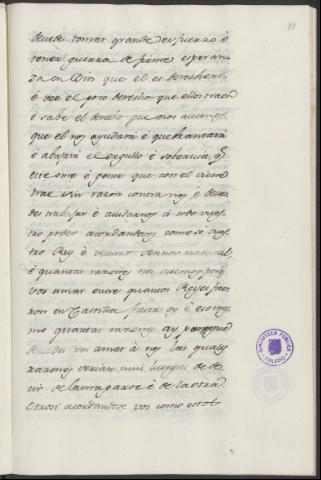 devedes tomar grande esfuerzo è
tener guerra de firme esperan-
za en Dios que el es derechero
è vee el poco derecho que ellos traen
è sabe el derecho que nos avemos
que el nos ayudarà è quebrantarà
è abajarà el orgullo è sobeavia q̃
este ome è gente que con el viene
trae sin razon contra nos è deve-
des trabajar è aiudarnos à todo vues-
tro poder acordandovos como so vues-
tro Rey è vuestro Sennor natural,
è quantas razones nos avemos por
vos amar entre quantos Reyes fue-
ron en Castilla fasta oy è eso mes-
mo quantas razones ay porque
devedes vos amar à nos las quales
razones serian mui luengas de de-
cir de la una parte è de la otra.
Otrosi acordandovos vos como estos
11
BIBLIOTECA PÚBLICA
TOLEDO